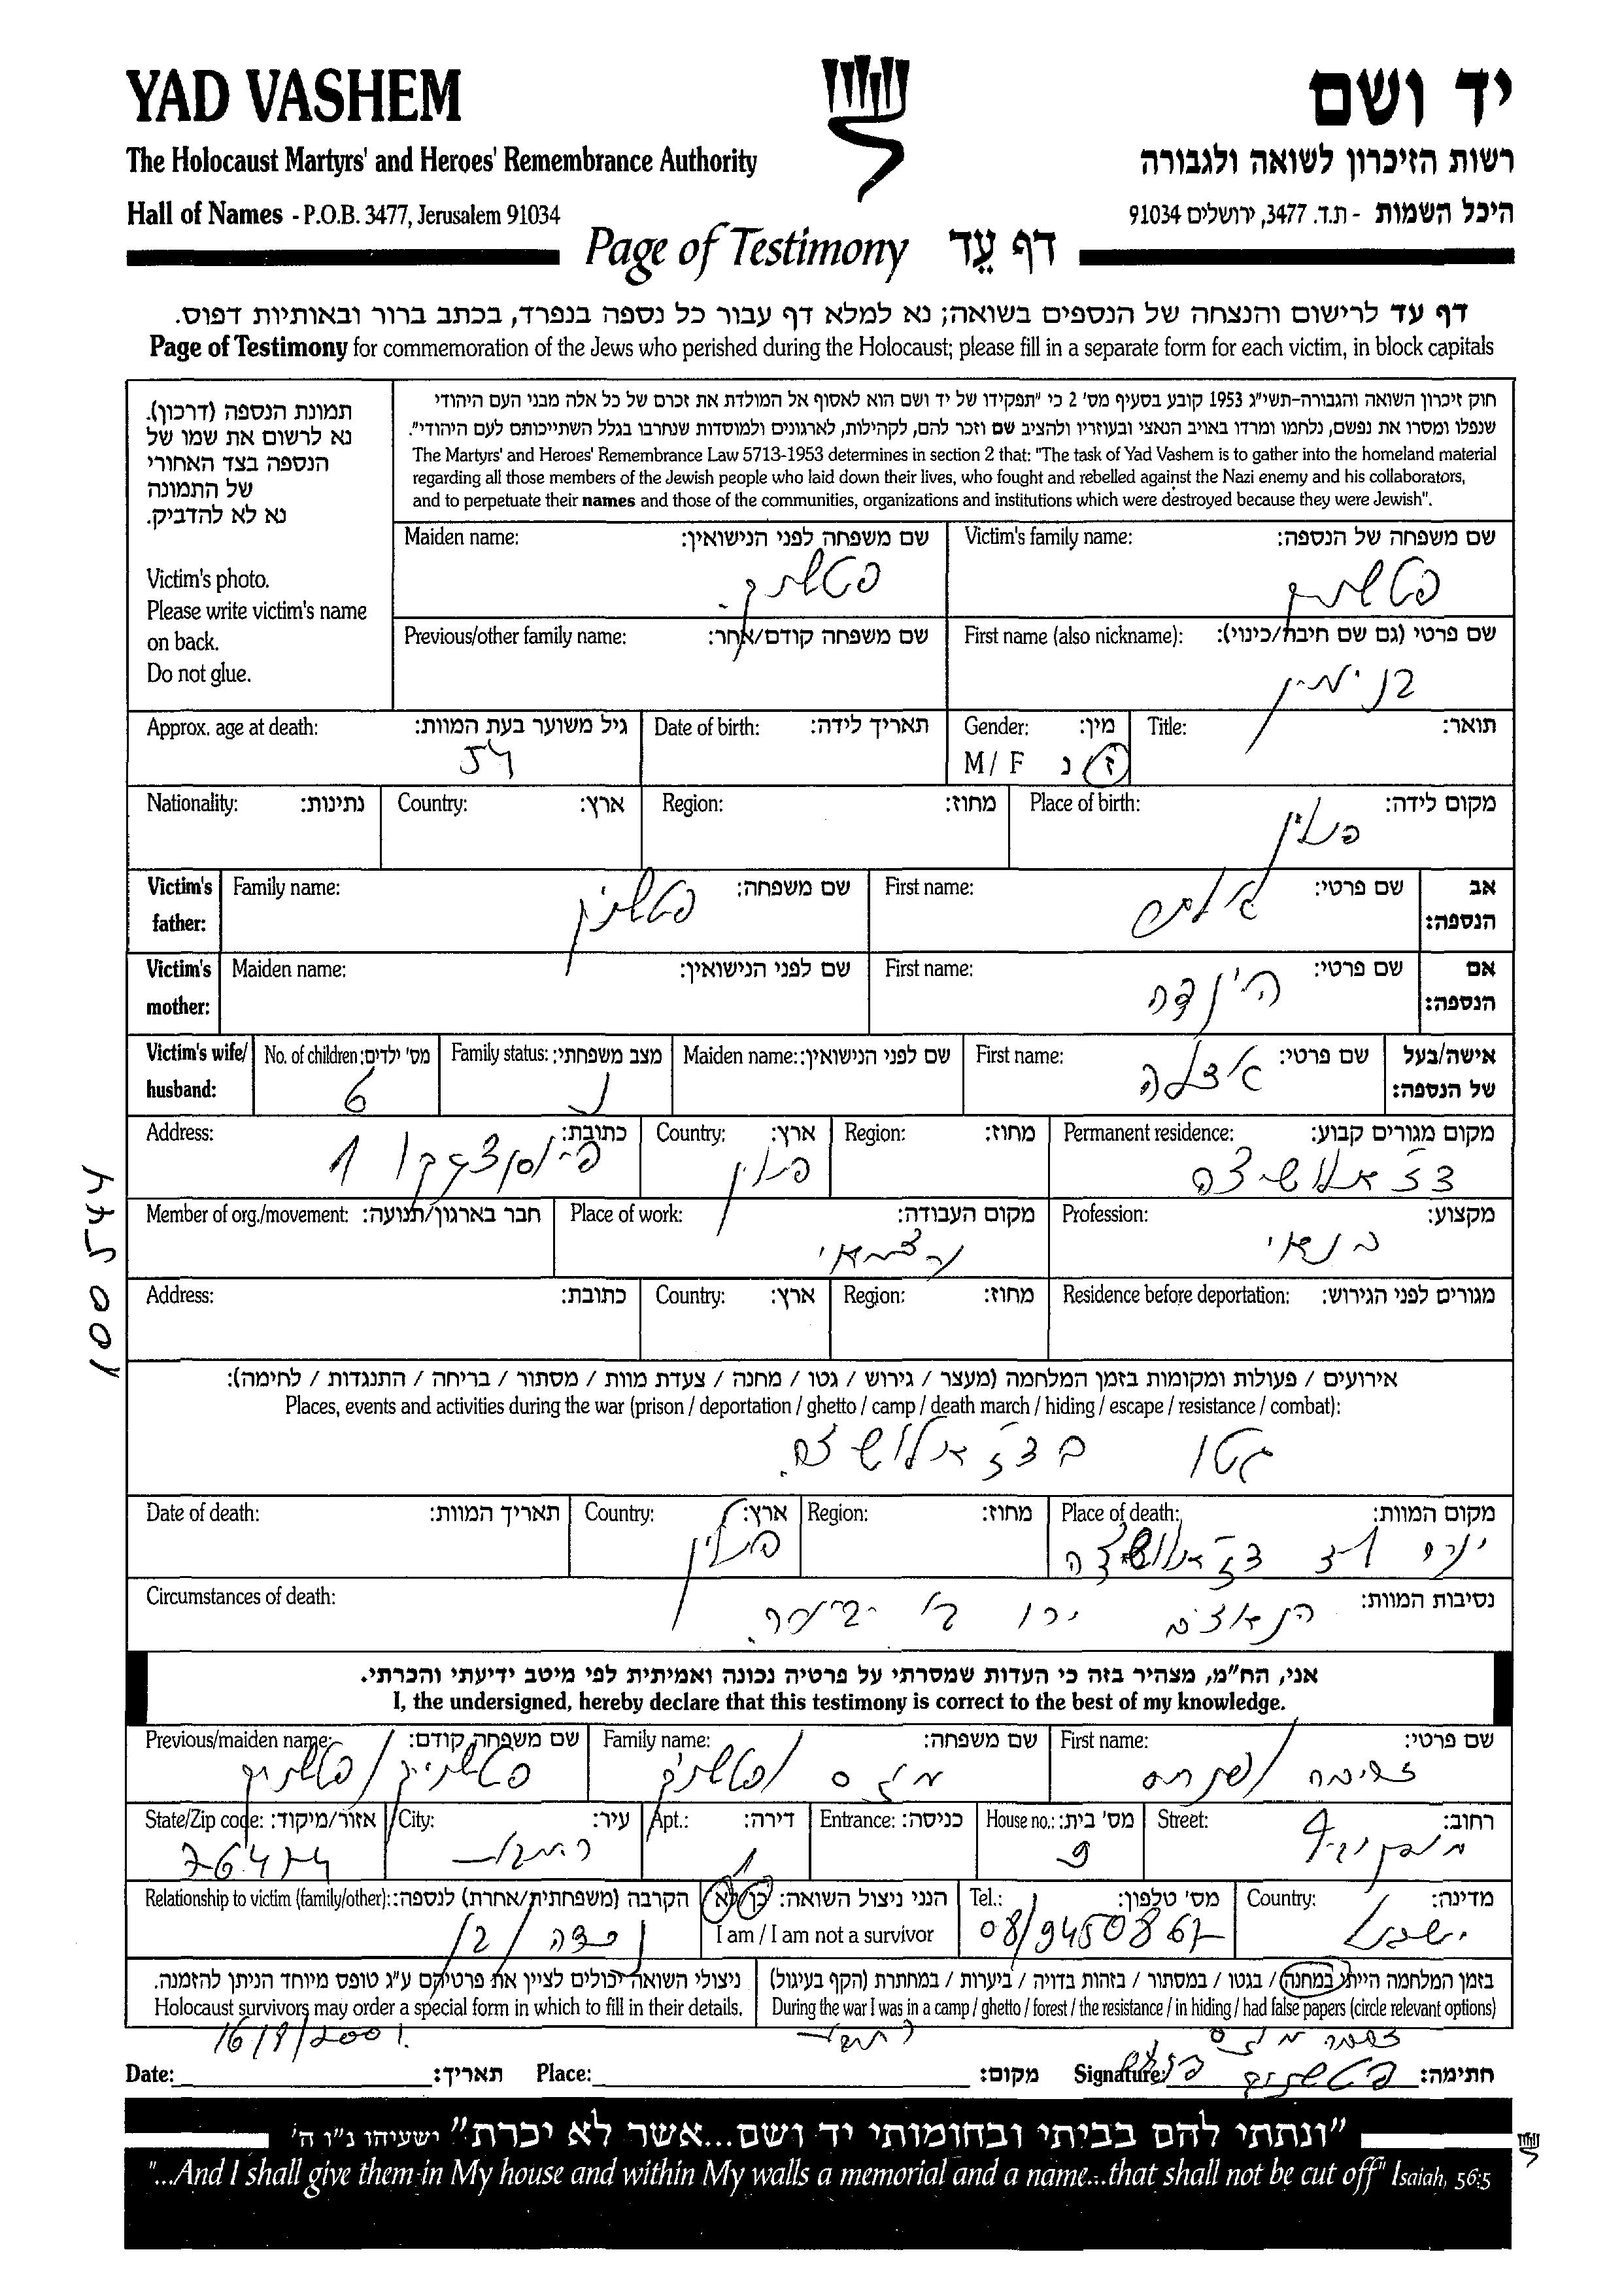 YAD VASHEM
יד ושם
The Holocaust Martyrs' and Heroes' Remembrance Authority
רשות הזיכרון לשואה ולגבורה
Hall of Names - P.O.B. 3477, Jerusalem 91034
היכל השמות - ת.ד. 3477, ירושלים 91034
Page of Testimony דף עֵד
דף עד לרישום והנצחה של הנספים בשואה; נא למלא דף עבור כל נספה בנפרד, בכתב ברור ובאותיות דפוס.
Page of Testimony for commemoration of the Jews who perished during the Holocaust; please fill in a separate form for each victim, in block capitals
תמונת הנספה (דרכון).
נא לרשום את שמו של
הנספה בצד האחורי
של התמונה
נא לא להדביק.
Victim's photo.
Please write victim's name
on back.
Do not glue.
חוק זיכרון השואה והגבורה-תשי"ג 1953 קובע בסעיף מס' 2 כי "תפקידו של יד ושם הוא לאסוף אל המולדת את זכרם של כל אלה מבני העם היהודי
שנפלו ומסרו את נפשם, נלחמו ומרדו באויב הנאצי ובעוזריו ולהציב שם וזכר להם, לקהילות, לארגונים ולמוסדות שנחרבו בגלל השתייכותם לעם היהודי".
The Martyrs' and Heroes' Remembrance Law 5713-1953 determines in section 2 that: "The task of Yad Vashem is to gather into the homeland material
regarding all those members of the Jewish people who laid down their lives, who fought and rebelled against the Nazi enemy and his collaborators,
and to perpetuate their names and those of the communities, organizations and institutions which were destroyed because they were Jewish".
שם משפחה של הנספה: Victim's family name:
שם משפחה לפני הנישואין: Maiden name:
שם פרטי (גם שם חיבה/כינוי): First name (also nickname):
בנימין
שם משפחה קודם/אחר: Previous/other family name:
תואר: Title:
מין: Gender:
ז / נ M / F
תאריך לידה: Date of birth:
גיל משוער בעת המוות: Approx. age at death:
54
מקום לידה: Place of birth:
פולין
מחוז: Region:
ארץ: Country:
נתינות: Nationality:
אב הנספה: Victim's father:
שם פרטי: First name:
שם משפחה: Family name:
אם הנספה: Victim's mother:
שם פרטי: First name:
הינדה
שם לפני הנישואין: Maiden name:
אישה/בעל של הנספה: Victim's wife/ husband:
שם פרטי: First name:
שם לפני הנישואין: Maiden name:
מצב משפחתי: Family status:
נ
מס' ילדים: No. of children:
6
מקום מגורים קבוע: Permanent residence:
מחוז: Region:
ארץ: Country:
פולין
כתובת: Address:
מקצוע: Profession:
בנאי
מקום העבודה: Place of work:
עצמאי
חבר בארגון/תנועה: Member of org./movement:
מגורים לפני הגירוש: Residence before deportation:
מחוז: Region:
ארץ: Country:
כתובת: Address:
אירועים / פעולות ומקומות בזמן המלחמה (מעצר / גירוש / גטו / מחנה / צעדת מוות / מסתור / בריחה / התנגדות / לחימה):
Places, events and activities during the war (prison / deportation / ghetto / camp / death march / hiding / escape / resistance / combat):
גטו
מקום המוות: Place of death:
מחוז: Region:
ארץ: Country:
פולין
תאריך המוות: Date of death:
נסיבות המוות: Circumstances of death:
אני, הח"מ, מצהיר בזה כי העדות שמסרתי על פרטיה נכונה ואמיתית לפי מיטב ידיעתי והכרתי.
I, the undersigned, hereby declare that this testimony is correct to the best of my knowledge.
שם פרטי: First name:
שם משפחה: Family name:
שם משפחה קודם: Previous/maiden name:
רחוב: Street:
מס' בית: House no.:
9
כניסה: Entrance:
דירה: Apt.:
1
עיר: City:
רחובות
אזור/מיקוד: State/Zip code:
76474
מדינה: Country:
ישראל
מס' טלפון: Tel.:
08/9450867
הנני ניצול השואה: כן / לא
I am / I am not a survivor
הקרבה (משפחתית/אחרת) לנספה: Relationship to victim (family/other):
נכדה / בן
בזמן המלחמה הייתי במחנה / בגטו / במסתור / בזהות בדויה / ביערות / במחתרת (הקף בעיגול)
During the war I was in a camp / ghetto / forest / the resistance / in hiding / had false papers (circle relevant options)
ניצולי השואה יכולים לציין את פרטיהם ע"ג טופס מיוחד הניתן להזמנה.
Holocaust survivors may order a special form in which to fill in their details.
חתימה: Signature:
מקום: Place:
תאריך: Date:
"ונתתי להם בביתי ובחומותי יד ושם...אשר לא יכרת" ישעיהו נ"ו ה'
"...And I shall give them in My house and within My walls a memorial and a name...that shall not be cut off" Isaiah, 56:5